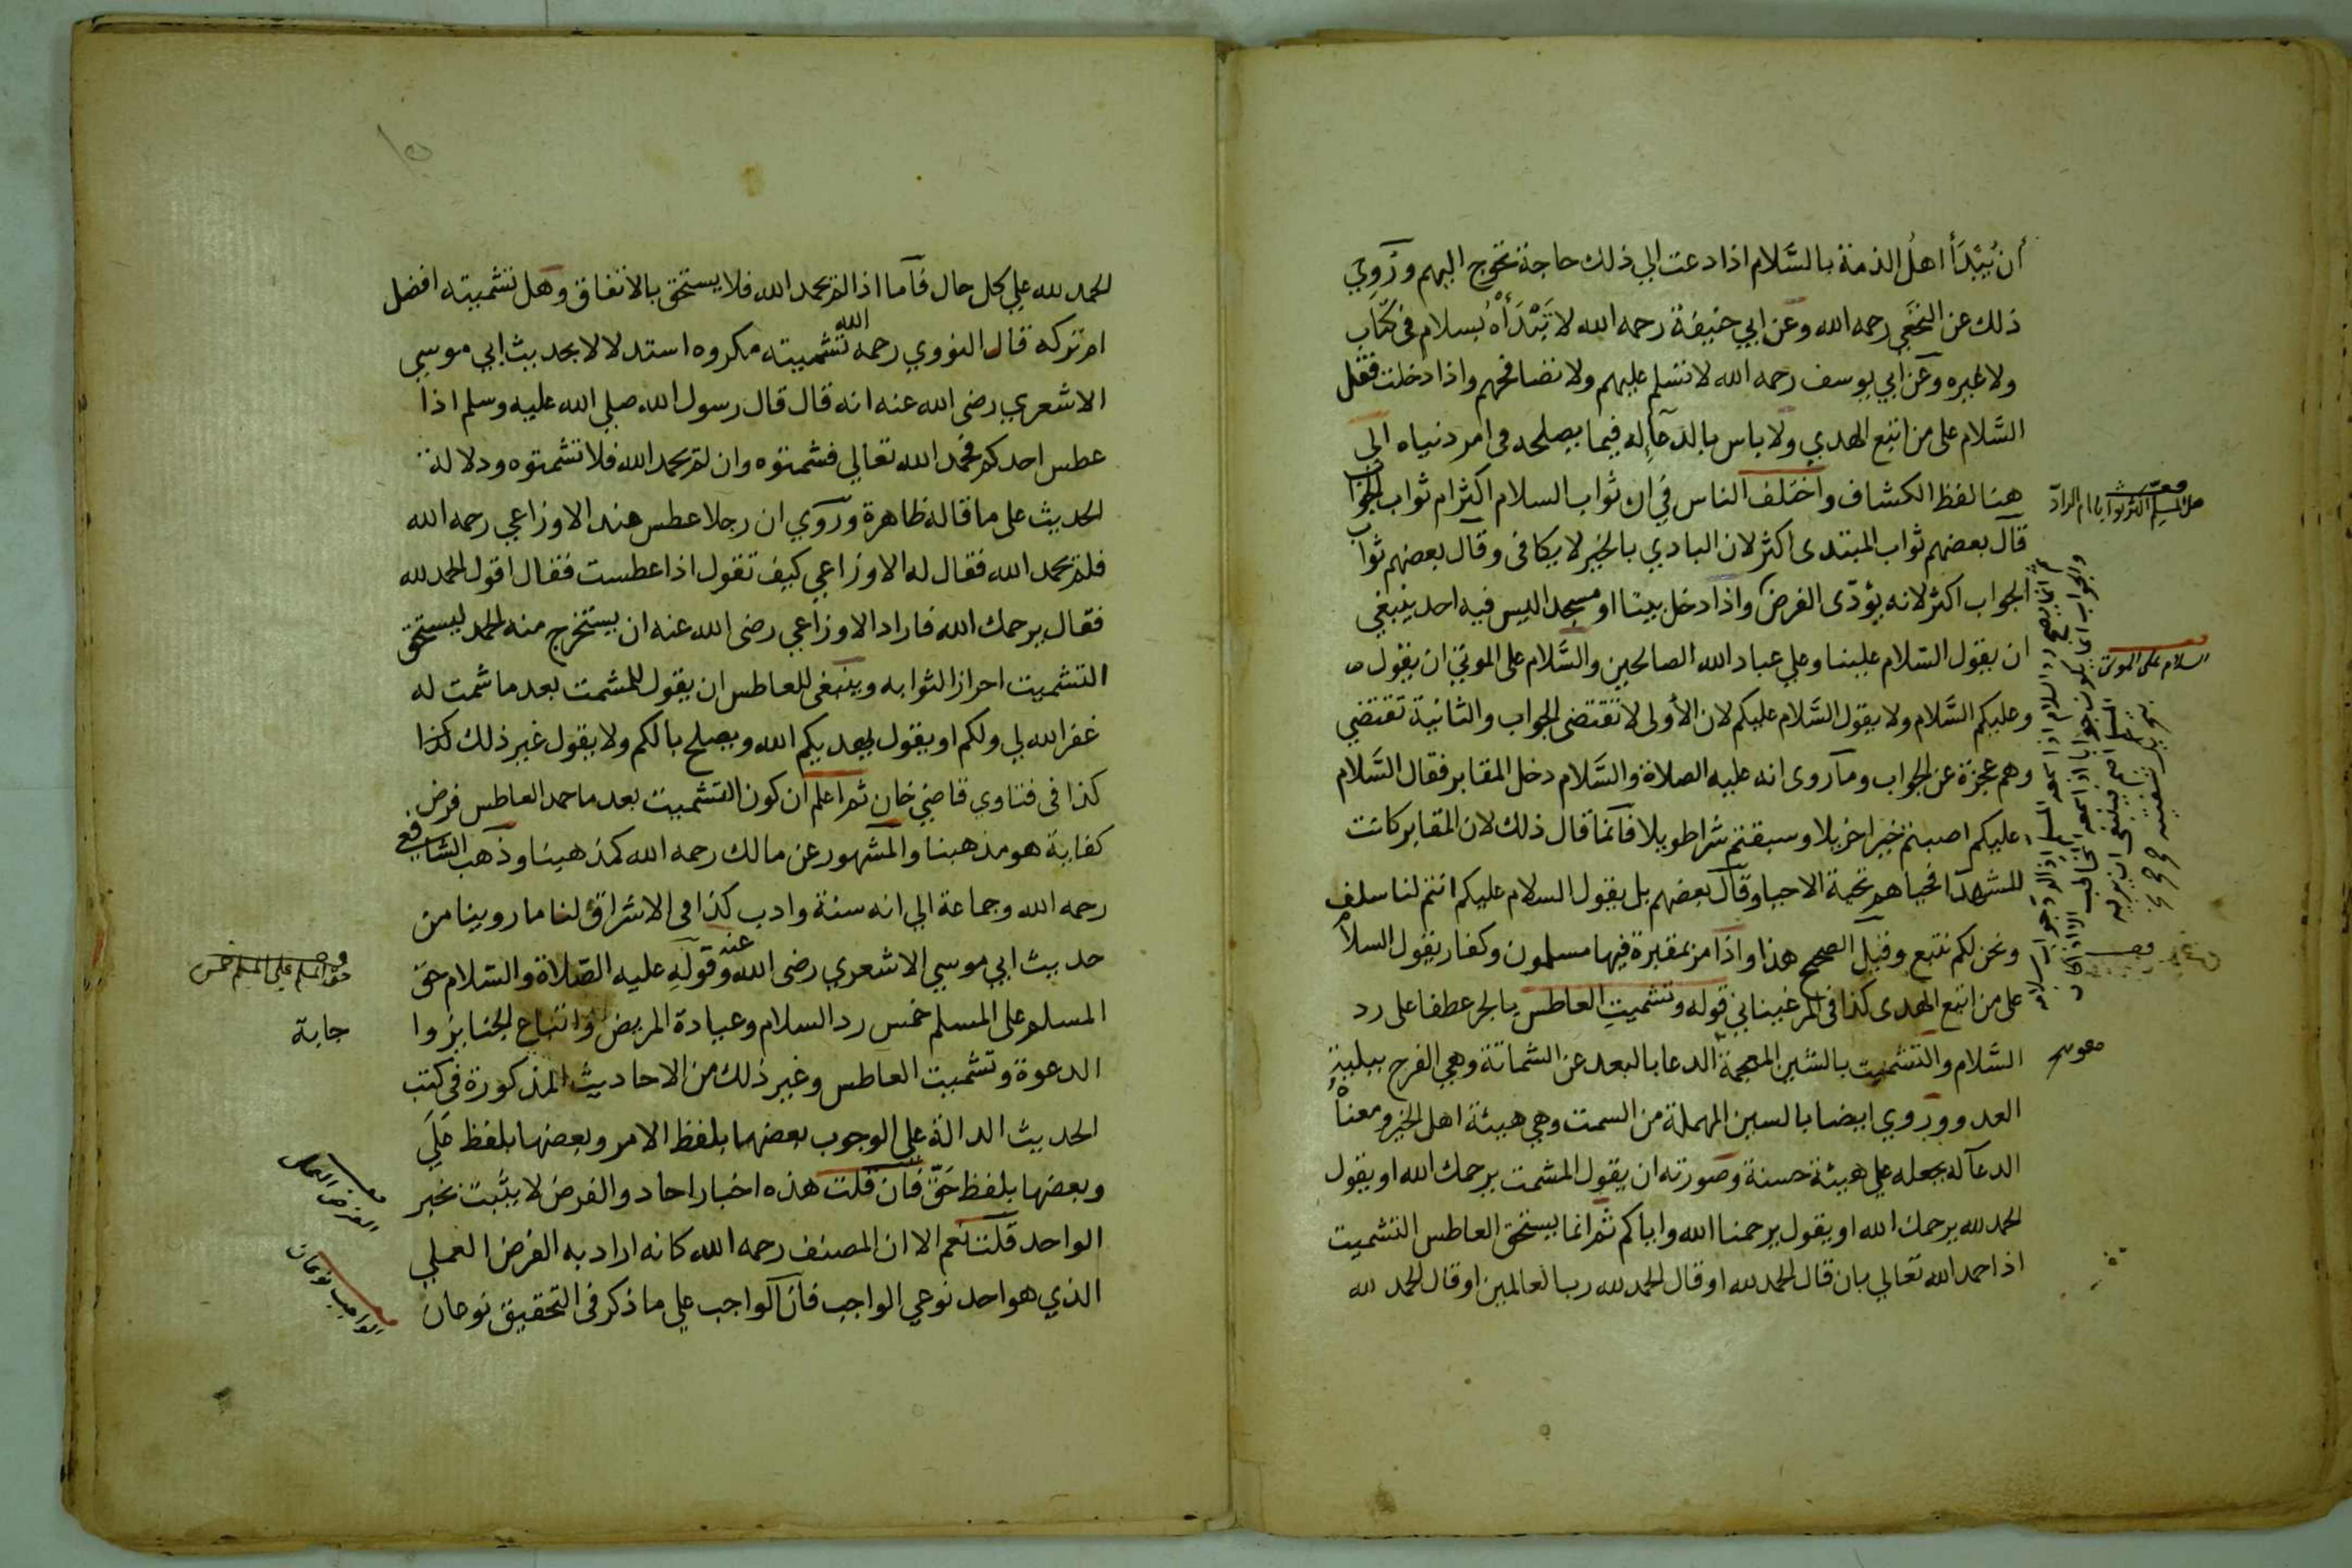 أن يُبْدَأ اهلُ الذمة بالسَّلام اذا دعت الي ذلك حاجة تحوج اليهم ورُوِيَ
ذلك عن النخَعِي رحمه الله وعن ابي حنيفة رحمه الله لا تَبْدَأْهُ بسلام في كتاب
ولا غيره وعن ابي يوسف رحمه الله لا تسلم عليهم ولا تصافحهم واذا دخلت فقل
السَّلام على من اتبع الهدي ولا باس بالدعآ له فيما يصلحه في امر دنياه الي
هنا لفظ الكشاف واختلف الناس في ان ثواب السلام اكثر ام ثواب الجواب
قال بعضهم ثواب المبتدى اكثر لان البادي بالخير لا يكافى وقال بعضهم ثواب
الجواب اكثر لانه يؤدّى الفرض واذا دخل بيتا او مسجدا ليس فيه احد ينبغي
ان يقول السّلام علينا وعلي عباد الله الصالحين والسَّلام على الموتى ان يقول
وعليكم السَّلام ولا يقول السَّلام عليكم لان الأولى لا تقتضى الجواب والثانية تقتضي
وهم عجزة عن الجواب وما روى انه عليه الصلاة والسَّلام دخل المقابر فقال السَّلام
عليكم اصبتم خيرا جزيلا وسبقتم شرا طويلا فانما قال ذلك لان المقابر كانت
للشهدآ فحياهم تحية الاحيا وقال بعضهم بل يقول السلام عليكم انتم لنا سلف
ونحن لكم تبع وقيل الصحيح هذا واذا مر بمقبرة فيها مسلمون وكفار يقول السلام
على من اتبع الهدى كذا فى المرغيناني قوله وتشميت العاطس بالجر عطفا على رد
السَّلام والتشميت بالشين المعجمة الدعا بالبعد عن الشماتة وهي الفرح ببلية
العدو وروي ايضا بالسين المهملة من السمت وهي هيئة اهل الخير ومعناه
الدعآ له بجعله علي هيئة حسنة وصورته ان يقول المشمت يرحمك الله او يقول
الحمد لله يرحمك الله او يقول يرحمنا الله واياكم ثم انما يستحق العاطس التشميت
اذا حمد الله تعالي بان قال الحمد لله او قال الحمد لله رب العالمين او قال الحمد لله
هل المسلم اكثر ثوابا ام الرادّ
السلام على الموتى
الحمد لله علي كل حال فاما اذا لم يحمد الله فلا يستحق بالاتفاق وهل تشميته افضل
ام تركه قال النووي رحمه الله تشميته مكروه استدلالا بحديث ابي موسي
الاشعري رضى الله عنه انه قال قال رسول الله صلي الله عليه وسلم اذا
عطس احدكم فحمد الله تعالي فشمتوه وان لم يحمد الله فلا تشمتوه ودلالة
الحديث على ما قاله ظاهرة وروي ان رجلا عطس عند الاوزاعي رحمه الله
فلم يحمد الله فقال له الاوزاعي كيف تقول اذا عطست فقال اقول الحمد لله
فقال يرحمك الله فاراد الاوزاعي رضى الله عنه ان يستخرج منه الحمد ليستحق
التشميت احرازا لثوابه وينبغى للعاطس ان يقول للمشمت بعد ما شمت له
غفر الله لي ولكم او يقول يهديكم الله ويصلح بالكم ولا يقول غير ذلك كذا
كذا فى فتاوي قاضي خان ثم اعلم ان كون التشميت بعد ما حمد العاطس فرض
كفاية هو مذهبنا والمشهور عن مالك رحمه الله كمذهبنا وذهب الشافعي
رحمه الله وجماعة الي انه سنة وادب كذا فى الاشراق لنا ما روينا من
حديث ابي موسي الاشعري رضى الله عنه وقوله عليه الصّلاة والسّلام حق
المسلم على المسلم خمس رد السلام وعيادة المريض واتباع الجنايز وا
جابة
الدعوة وتشميت العاطس وغير ذلك من الاحاديث المذكورة في كتب
الحديث الدالة على الوجوب بعضها بلفظ الامر وبعضها بلفظ عَلَي
وبعضها بلفظ حَقّ فان قلت هذه اخبار احاد والفرض لا يثبت بخبر
الواحد قلت نعم الا ان المصنف رحمه الله كانه اراد به الفرض العملي
الذي هو احد نوعي الواجب فان الواجب علي ما ذكر فى التحقيق نوعان
حق المسلم علي المسلم خمس
الواجب نوعان